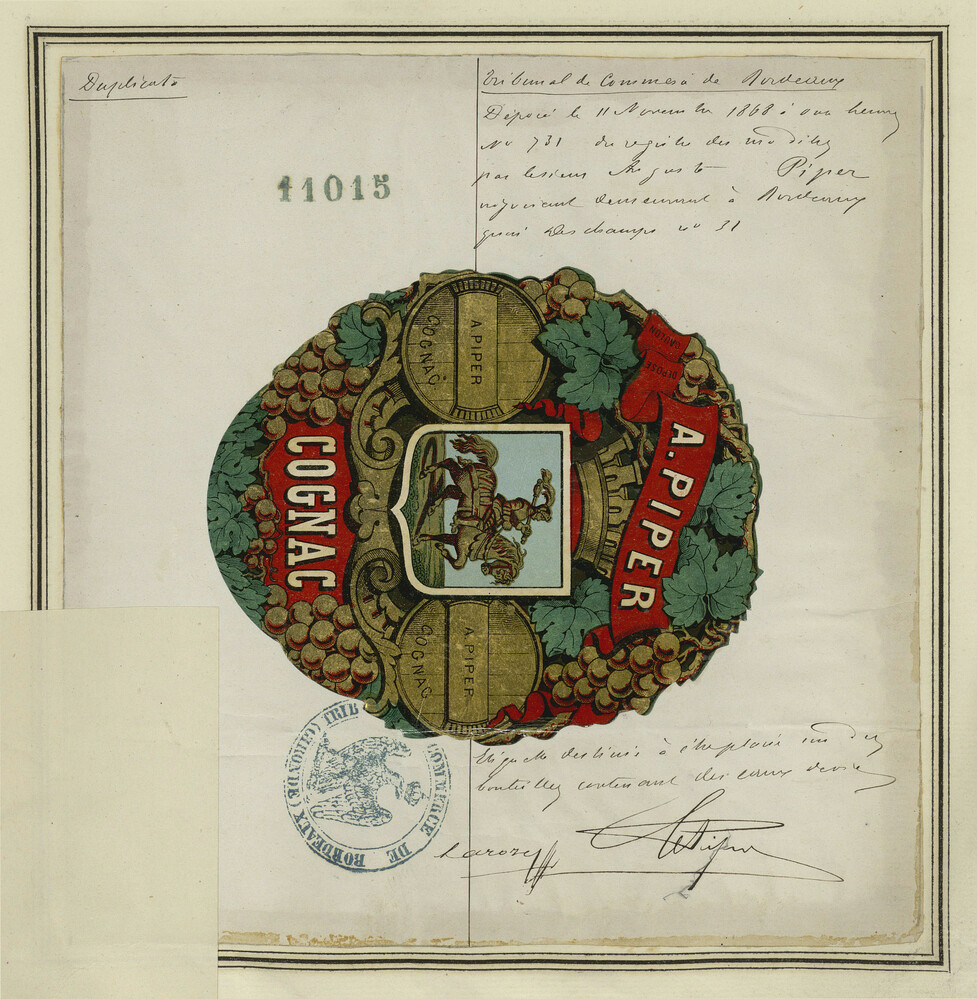 Duplicata
Tribunal de Commerce de Bordeaux
Déposé le 11 Novembre 1868 à onze heures
No 731 du registre des modèles
par le sieur Auguste Piper
négociant demeurant à Bordeaux
quai Deschamps no 31
11015
A. PIPER
COGNAC
GAULON
DÉPOSÉ
A. PIPER
COGNAC
A. PIPER
COGNAC
TRIB COMMERCE DE BORDEAUX (GIRONDE)
Etiquette destinée à être placée sur des
bouteilles contenant des eaux de vie
Larozey